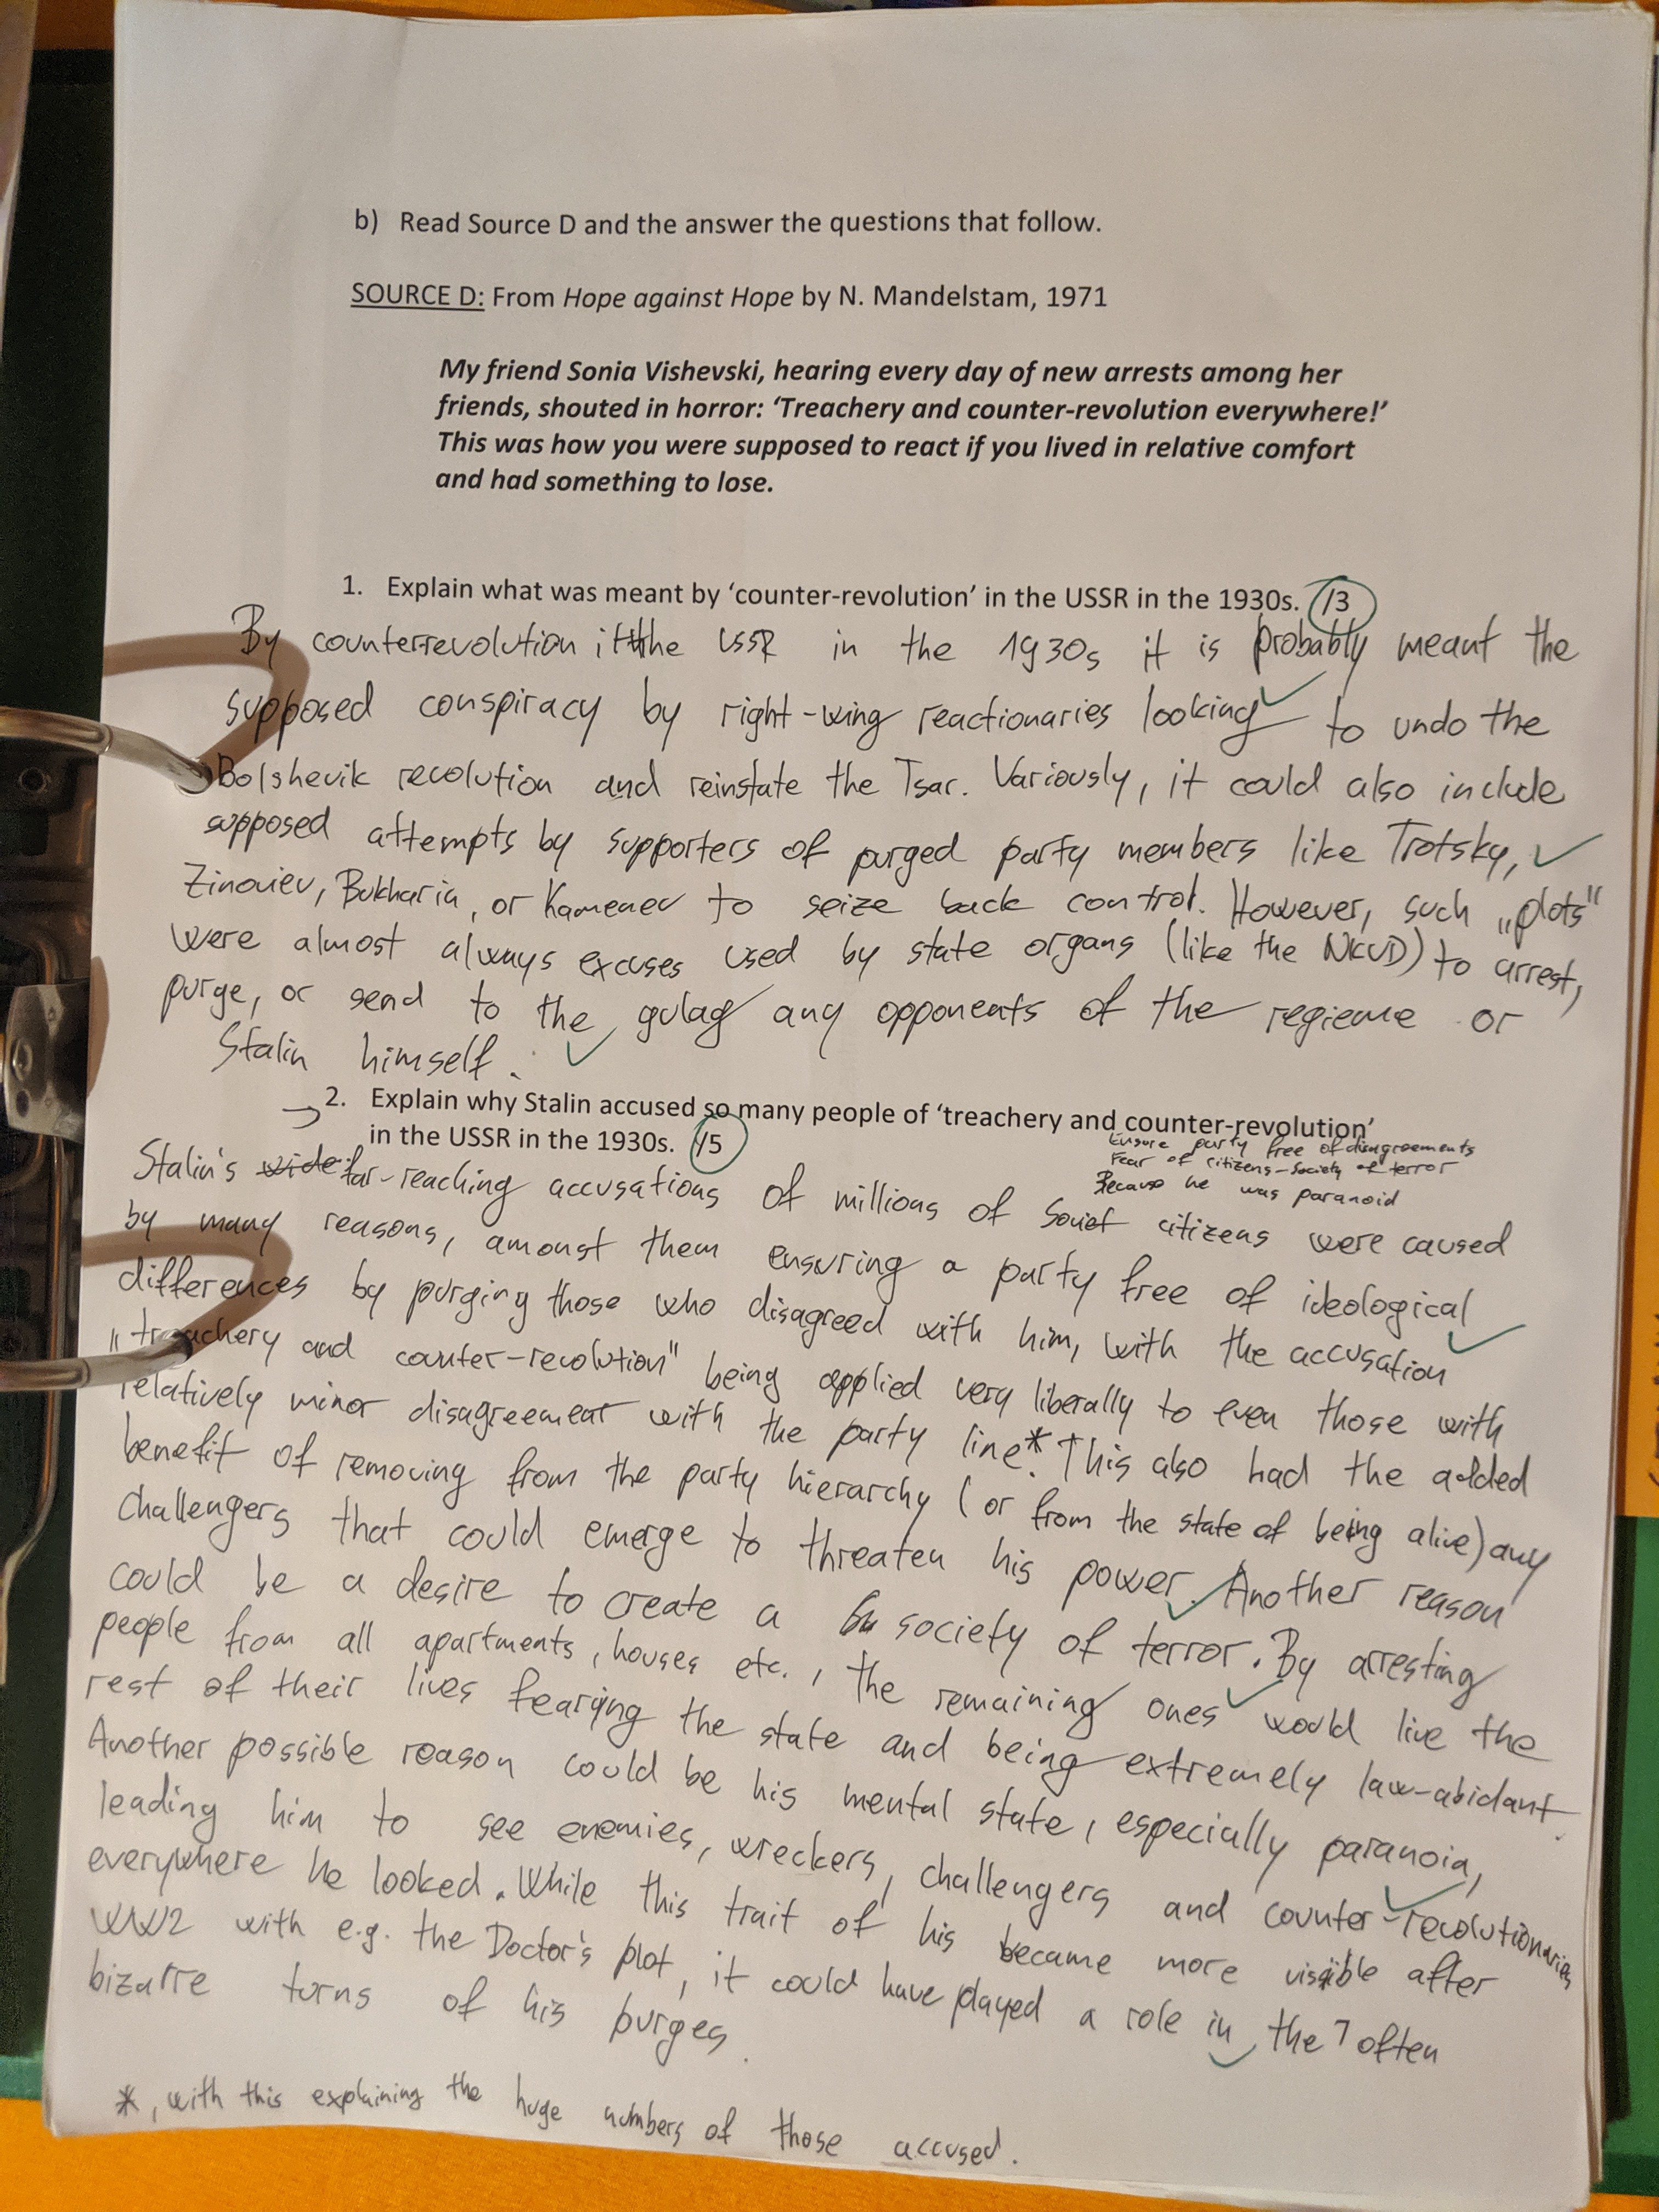 b) Read Source D and the answer the questions that follow.
SOURCE D: From Hope against Hope by N. Mandelstam, 1971
My friend Sonia Vishevski, hearing every day of new arrests among her
friends, shouted in horror: ‘Treachery and counter-revolution everywhere!’
This was how you were supposed to react if you lived in relative comfort
and had something to lose.
1. Explain what was meant by ‘counter-revolution’ in the USSR in the 1930s. /3
By counterrevolution in the USSR in the 1930s it is probably meant the
supposed conspiracy by right-wing reactionaries looking to undo the
Bolshevik revolution and reinstate the Tsar. Variously, it could also include
supposed attempts by supporters of purged party members like Trotsky,
Zinoviev, Bukharin, or Kamenev to seize back control. However, such „plots"
were almost always excuses used by state organs (like the NKVD) to arrest,
purge, or send to the gulag any opponents of the regieme or
Stalin himself.
→ 2. Explain why Stalin accused so many people of ‘treachery and counter-revolution’
in the USSR in the 1930s. /5
Ensure party free of disagreements
Fear of citizens - society of terror
Because he was paranoid
Stalin's wide far-reaching accusations of millions of Soviet citizens were caused
by many reasons, amonst them ensuring a party free of ideological
differences by purging those who disagreed with him, with the accusation
„treachery and counter-revolution" being applied very liberally to even those with
relatively minor disagreement with the party line*. This also had the added
benefit of removing from the party hierarchy (or from the state of being alive) any
challengers that could emerge to threaten his power. Another reason
could be a desire to create a society of terror. By arresting
people from all apartments, houses etc., the remaining ones would live the
rest of their lives fearing the state and being extremely law-abidant.
Another possible reason could be his mental state, especially paranoia,
leading him to see enemies, wreckers, challengers and counter-revolutionaries
everywhere he looked. While this trait of his became more visible after
WW2 with e.g. the Doctor's plot, it could have played a role in the often
bizarre turns of his purges.
*, with this explaining the huge numbers of those accused.